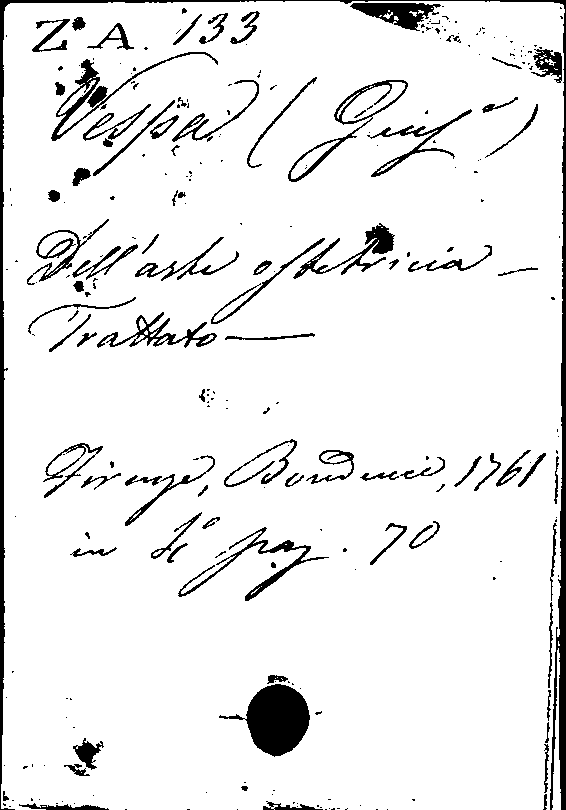 Z A. 133
Vespa (Giusᵉ)
Dell'arte ostetricia —
Trattato —
Firenze, Bonducci, 1761
in 4° pag. 70